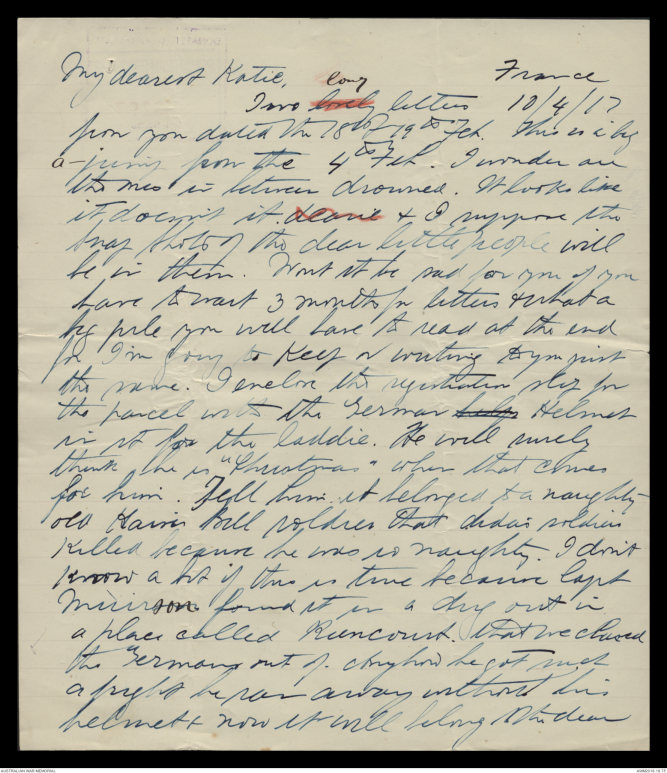 My dearest Katie, France
Two lovely long letters 10/4/17
from you dated the 18th & 19th Feb. This is a big
a jump from the 4th Feb. I wonder are
the ones in between drowned. It looks like
it doesn't it dearie & I suppose the
snap shots of the dear little people will
be in them. Wont it be sad for you if you
have to wait 3 months for letters & what a
big pile you will have to read at the end
for I'm going to keep on writing to you just
the same. I enclose the registration slip for
the parcel with the German Helmet
in it for the laddie. He will surely
think he is "Christmas" when that comes
for him. Tell him it belonged to a naughty
old Kaiser Bill soldier that dada's soldiers
killed because he was so naughty. I don't
know a bit if this is true because Capt
Muirson found it in a dug out in
a place called Reincourt. That we chased
the Germans out of. Anyhow he got such
a fright he ran away without his
helmet & now it will belong to the dear
AUSTRALIAN WAR MEMORIAL